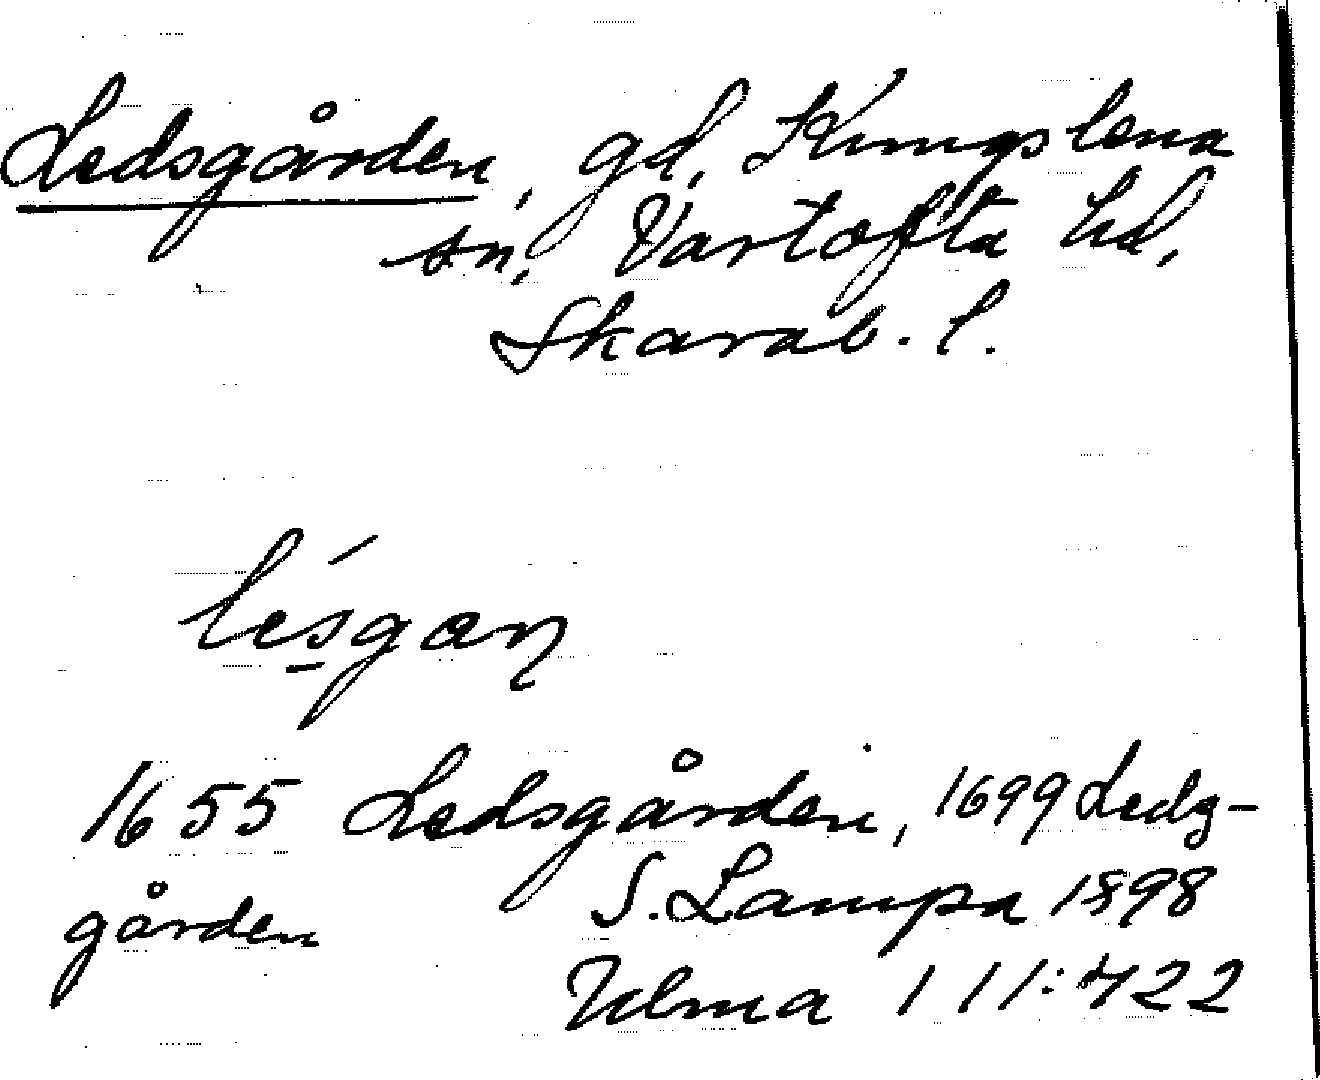 Ledsgården, gd, Kungslena
sn, Vartofta hd,
Skarab. l.
lesgan
1655 Ledsgården, 1699 Ledz-
gården S. Lampa 1898
Ulma 111:422